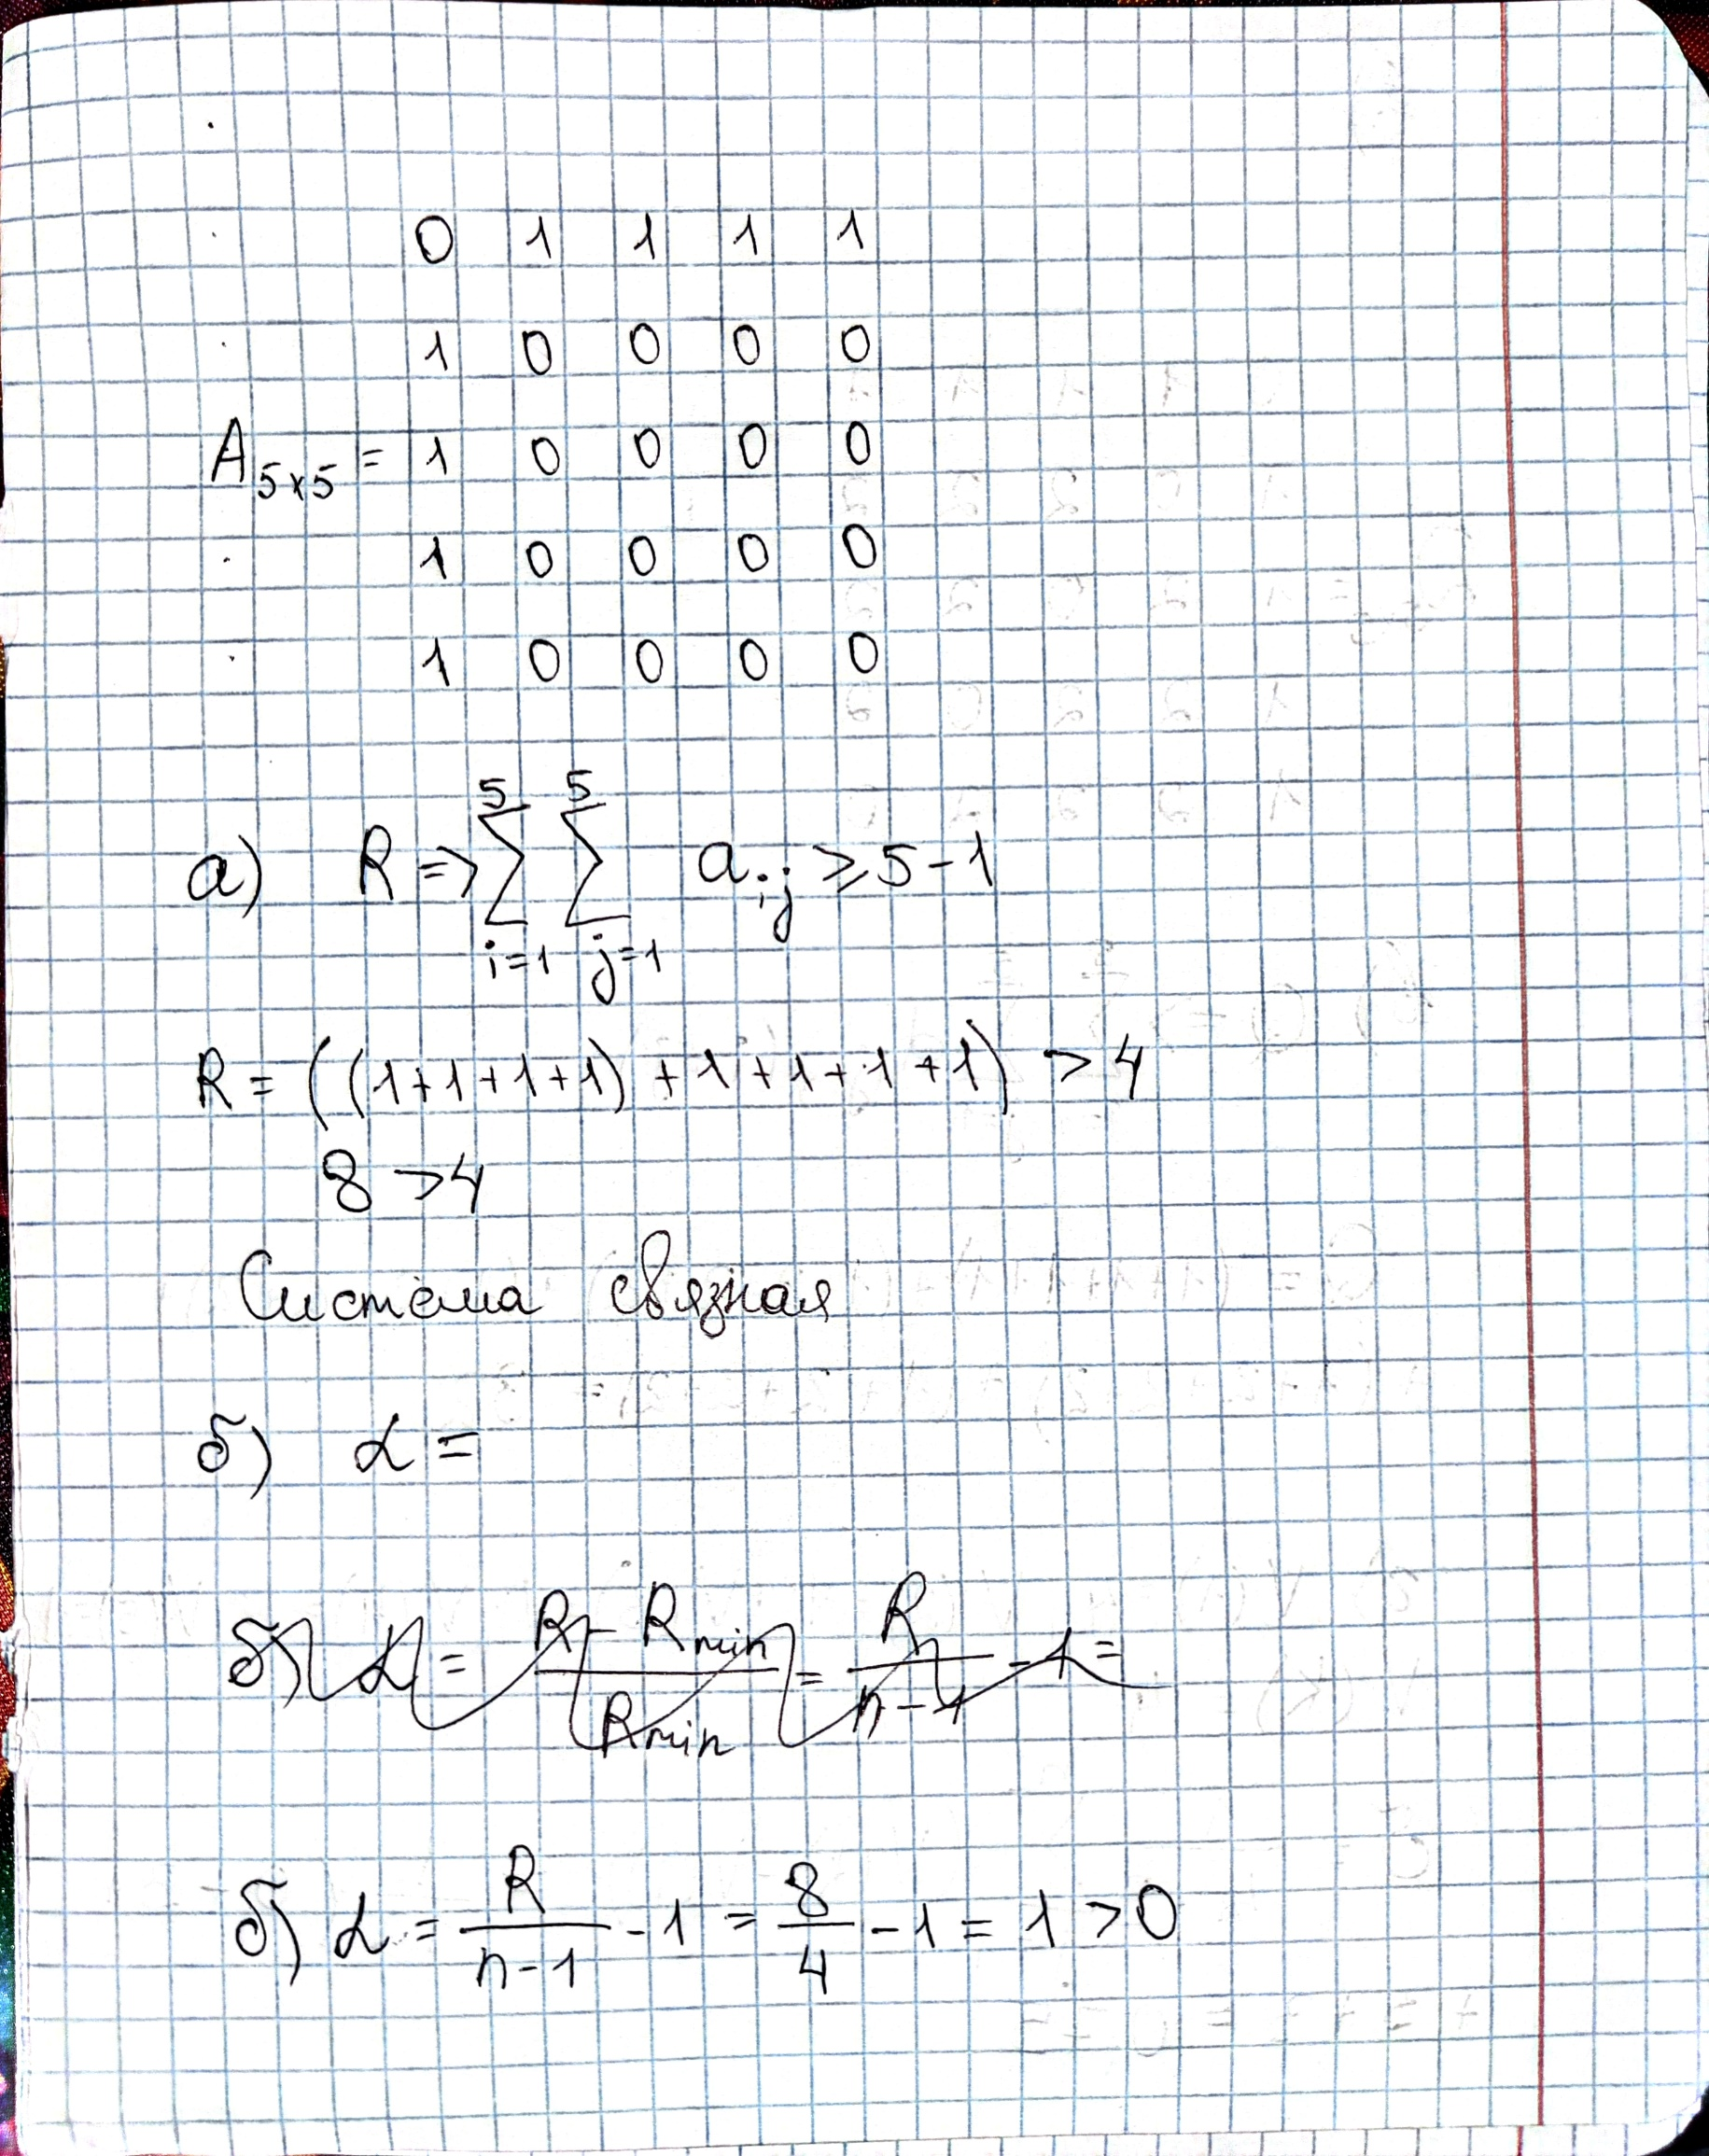 0 1 1 1 1
1 0 0 0 0
A₅ₓ₅ = 1 0 0 0 0
1 0 0 0 0
1 0 0 0 0
5 5
а) R => ∑ ∑ aij ⩾ 5 - 1
i=1 j=1
R = ((1+1+1+1) + 1 + 1 + 1 + 1) > 4
8 > 4
Система связная
б) α =
б) α = R - Rmin / Rmin = R / n - 1 - 1 =
б) α = R / n - 1 - 1 = 8 / 4 - 1 = 1 > 0